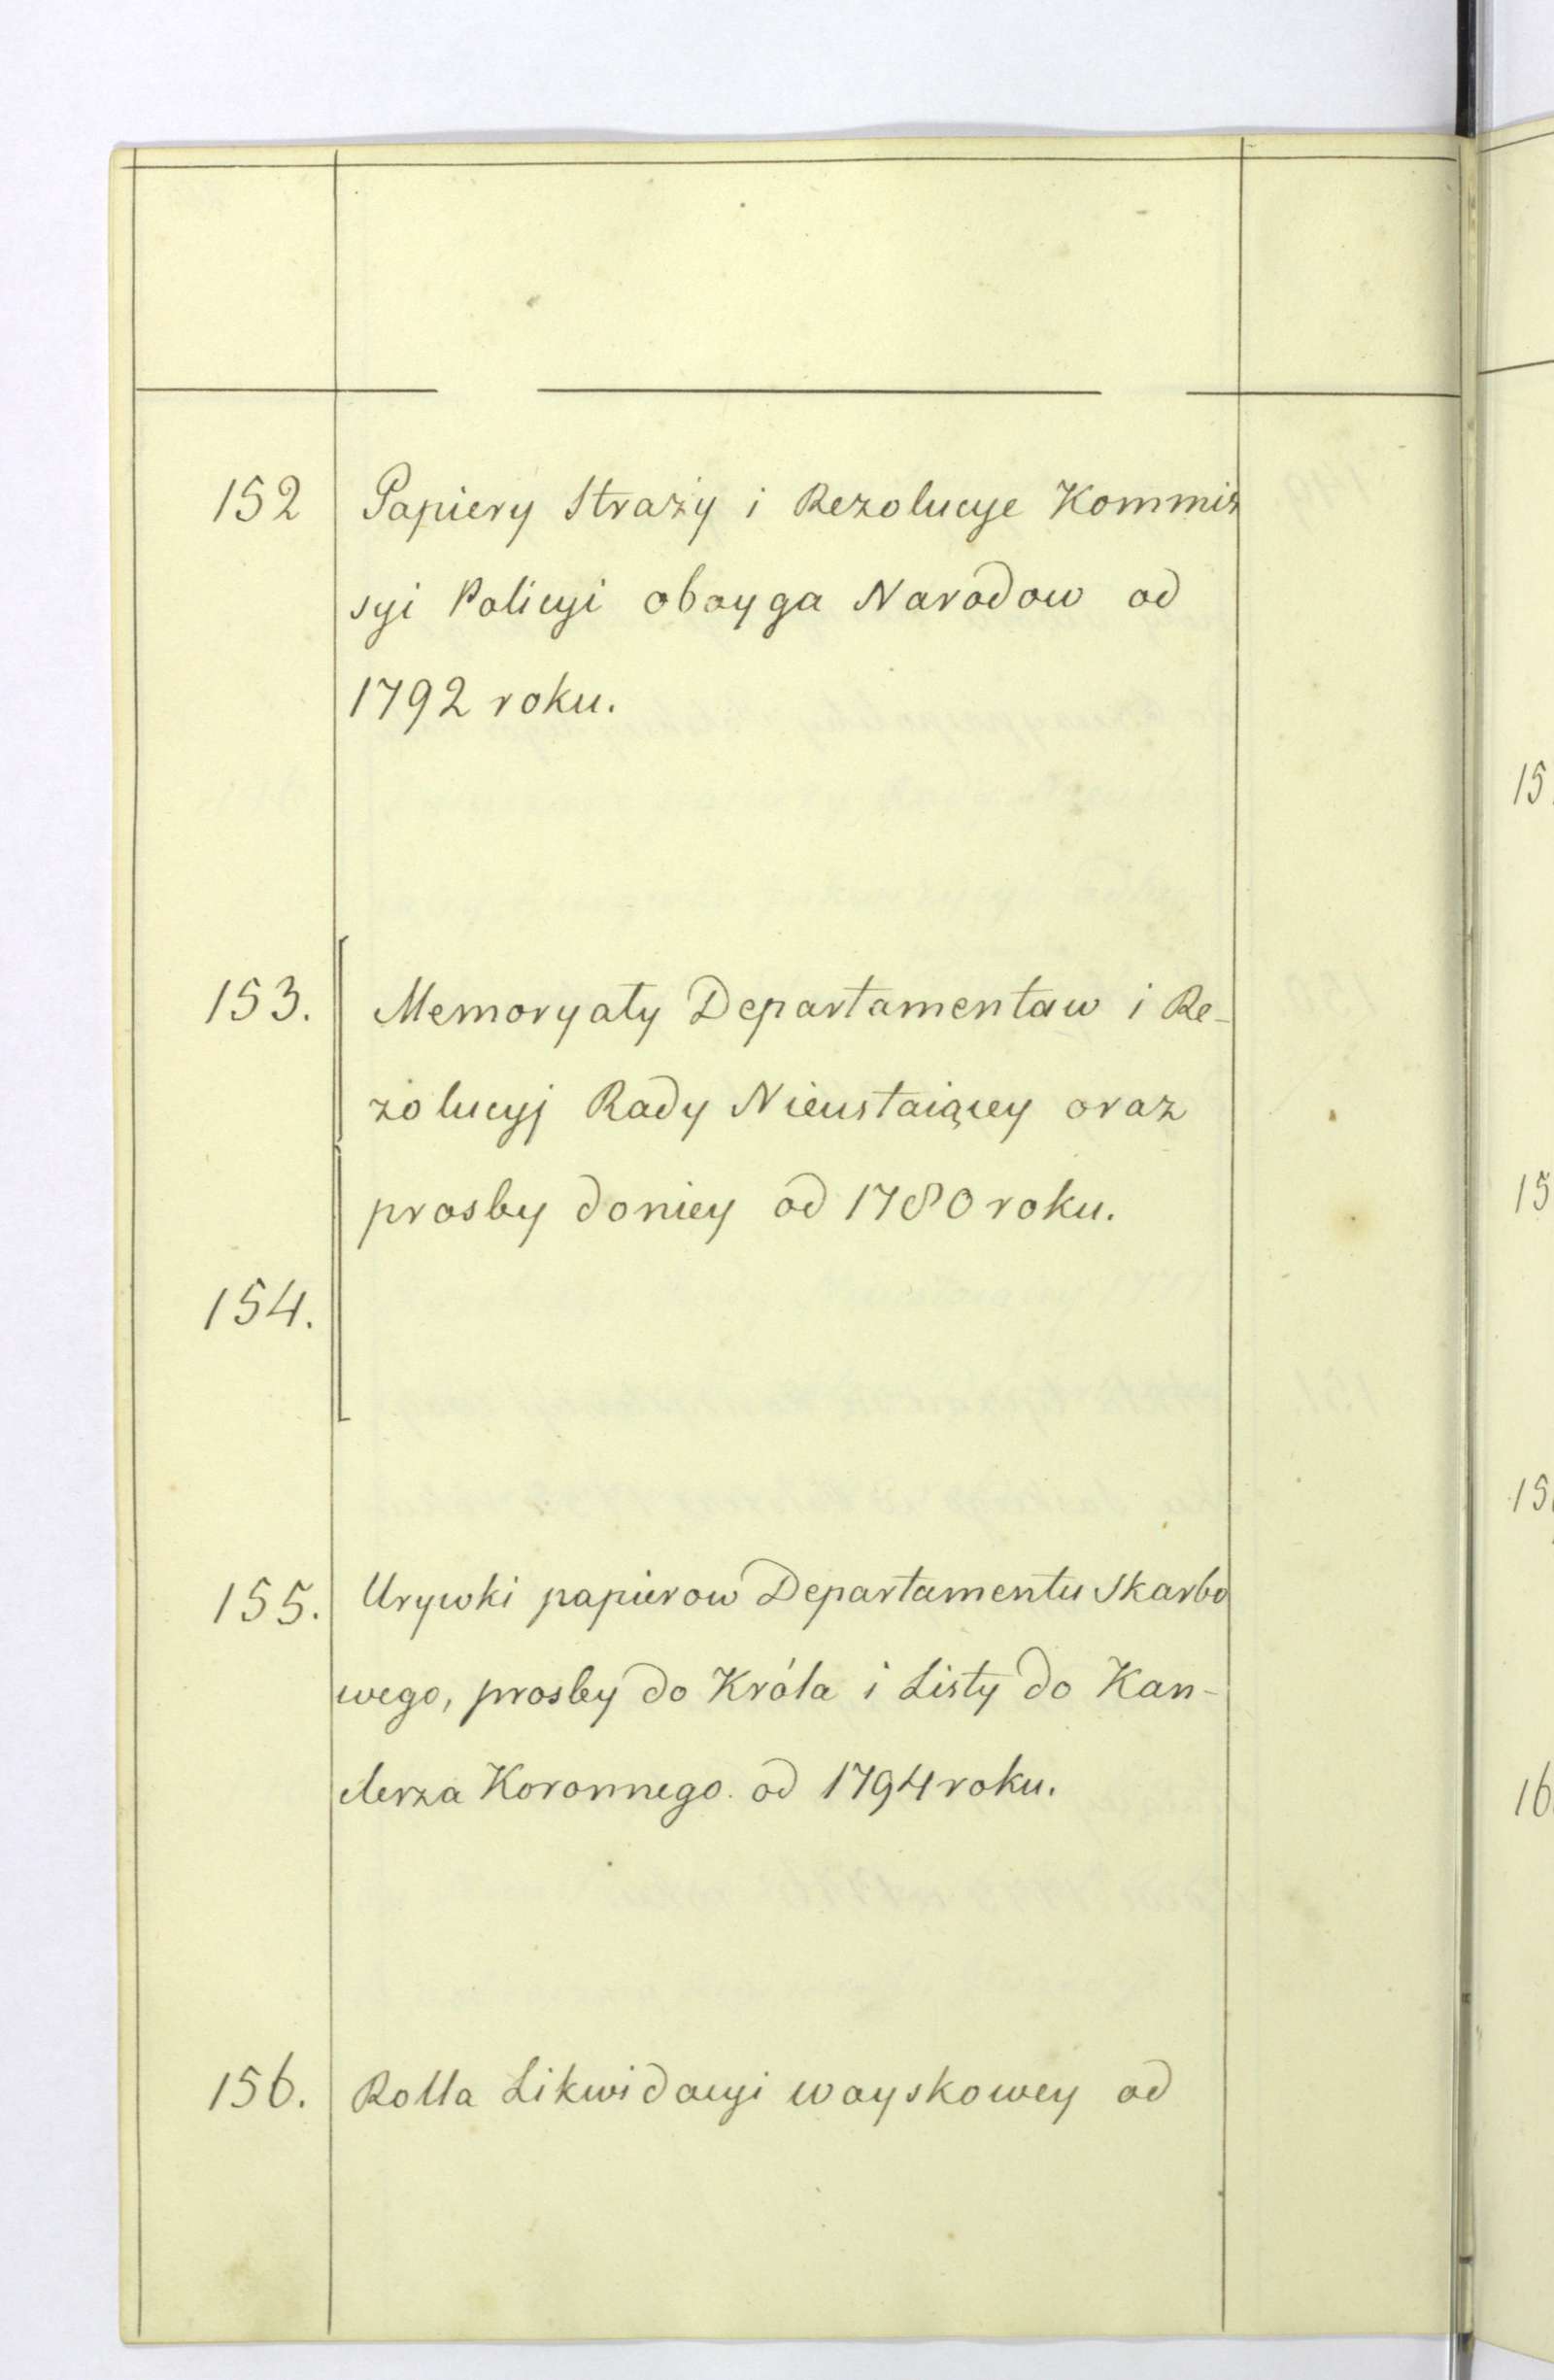 152 Papiery Straży i Rezolucye Kommis
syi Policyi oboyga Narodow od
1792 roku.
153. Memoryały Departamentow i Re-
zolucyj Rady Nieustaiącey oraz
prosby doniey od 1780 roku.
154.
155. Urywki papierow Departamentu Skarbo
wego, prosby do Króla i Listy do Kan-
clerza Koronnego. od 1794 roku.
156. Rolla Likwidacyi woyskowey od
15
15
15
16